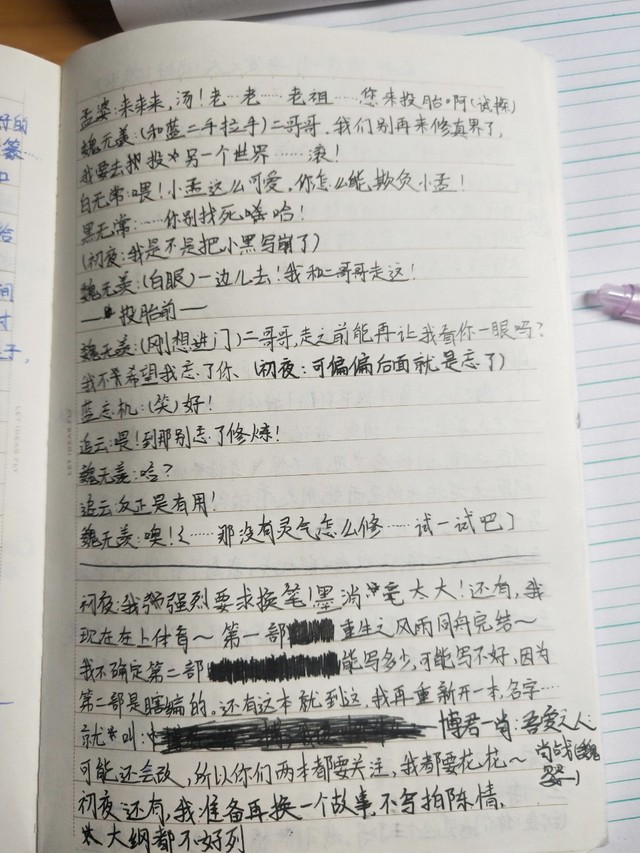 孟婆:来来来,汤!老……老……老祖……您来投胎啊(试探)
魏无羡:(和蓝二手拉手)二哥哥,我们别再来修真界了,
我要去投另一个世界……滚!
白无常:喂!小孟这么可爱,你怎么能欺负小孟!
黑无常:……你别找死嗒哈!
(初夜:我是不是把小黑写崩了)
魏无羡:(白眼)一边儿去!我和二哥哥走这!
—投胎前—
魏无羡:(刚想进门)二哥哥,走之前能再让我看你一眼吗?
我不希望我忘了你、(初夜:可偏偏后面就是忘了)
蓝忘机:(笑)好!
追云:喂!到那别忘了修炼!
魏无羡:哈?
追云:反正是有用!
魏无羡:噢!〔……那没有灵气怎么修……试一试吧〕
初夜:我强烈要求换笔!墨消毫太大!还有,我
现在在上体育~第一部 重生之风雨同舟完结~
我不确定第二部 能写多少,可能写不好,因为
第二部是瞎编的。还有这本就到这,我再重新开一本,名字…
就叫: 博君一肖:吾爱之人
可能还会改,所以你们两本都要关注,我都要花花~
肖战(魏
初夜:还有,我准备再换一个故事,不写拍陈情,
大纲都不好列